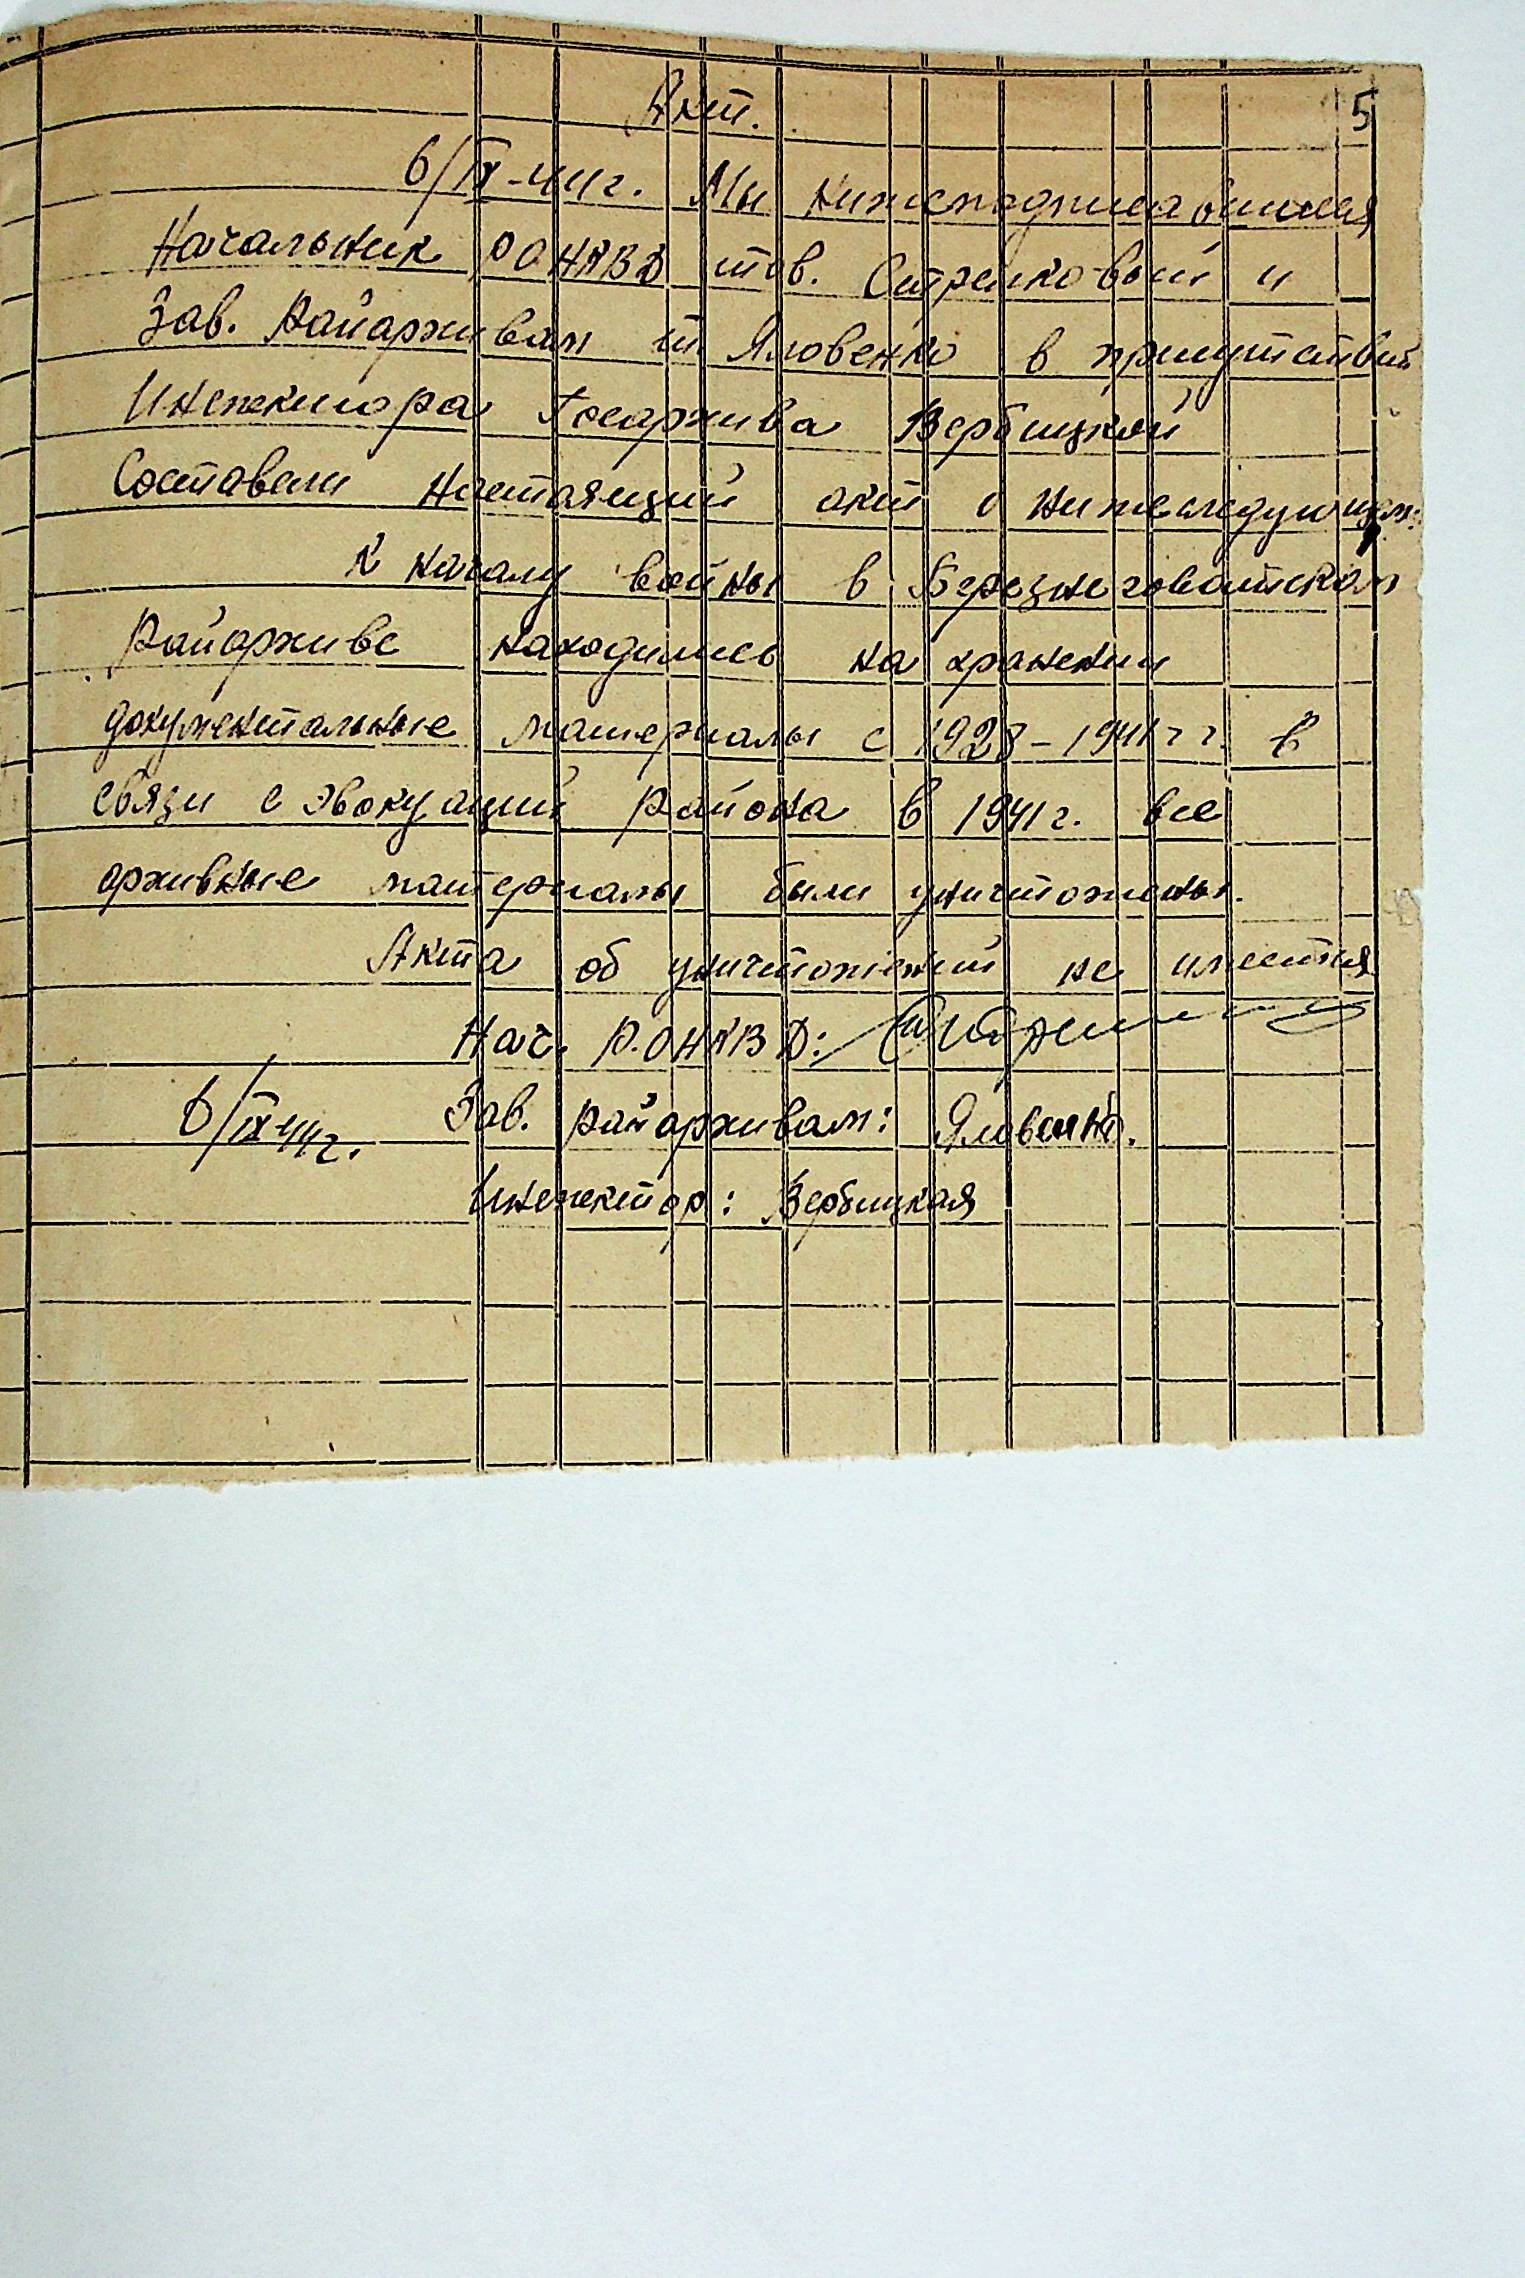 5
Акт.
6/IX-44г. Мы нижеподписавшиеся
Начальник РОНКВД тов. Стрелковый и
Зав. Райархивам т Яловенко в присутствий
Инспектора Госархива Вербицкой
Составели настаящий акт о нижеследующем:
К началу войны в Березнеговатскам
Райархиве находились на хранении
документальные материалы с 1928-1941гг. в
связи с эвокуаций Района в 1941г. все
архивные материалы были уничтожены.
Акта об уничтожений не имеется
Нач. Р.ОНКВД:
6/IX-44г. Зав. райархивам: Яловенко.
Инспектор: Вербицкая